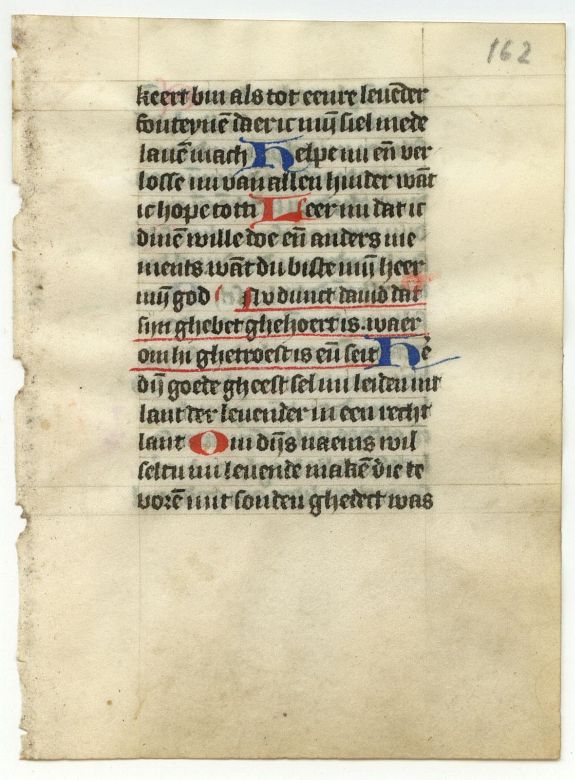 162
keert bin als tot eenre leuēder
fonteynē daer ic mijn siel mede
lauē mach Helpe mi eñ ver
losse mi van allen hinder wāt
ic hope to ti Leer mi dat ic
dinē wille doe eñ anders nie
ments wāt du biste mijn heer
mijn god Nv dunct dauid dat
sijn ghebet ghehoert is. waer
om hi ghetroest is eñ seit Hē
dijn goede gheest sel mi leiden int
lant der leuender in een recht
lant Om dijns naems wil
seltu mi leuende makē die te
vorē mit sonden ghedect was